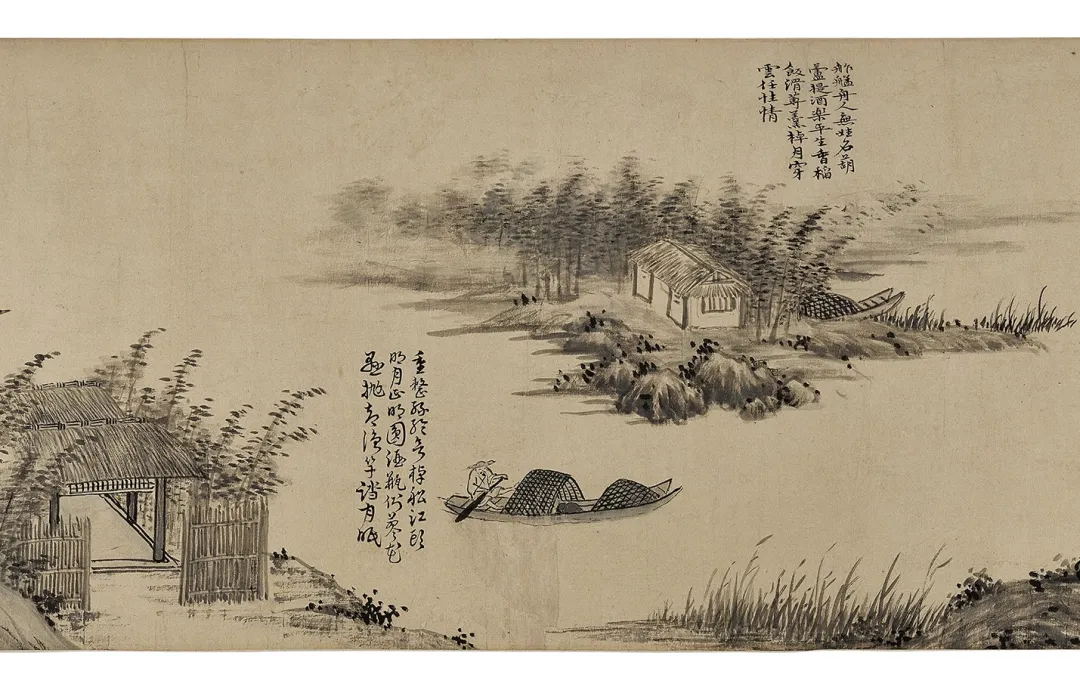 舴艋舟人無姓名葫
蘆提酒樂平生香稻
飯滑蓴羹棹月穿
雲任性情
重整絲綸欲棹船江頭
明月正明圓酒瓶倒花
懸拋却漁竿踏月眠